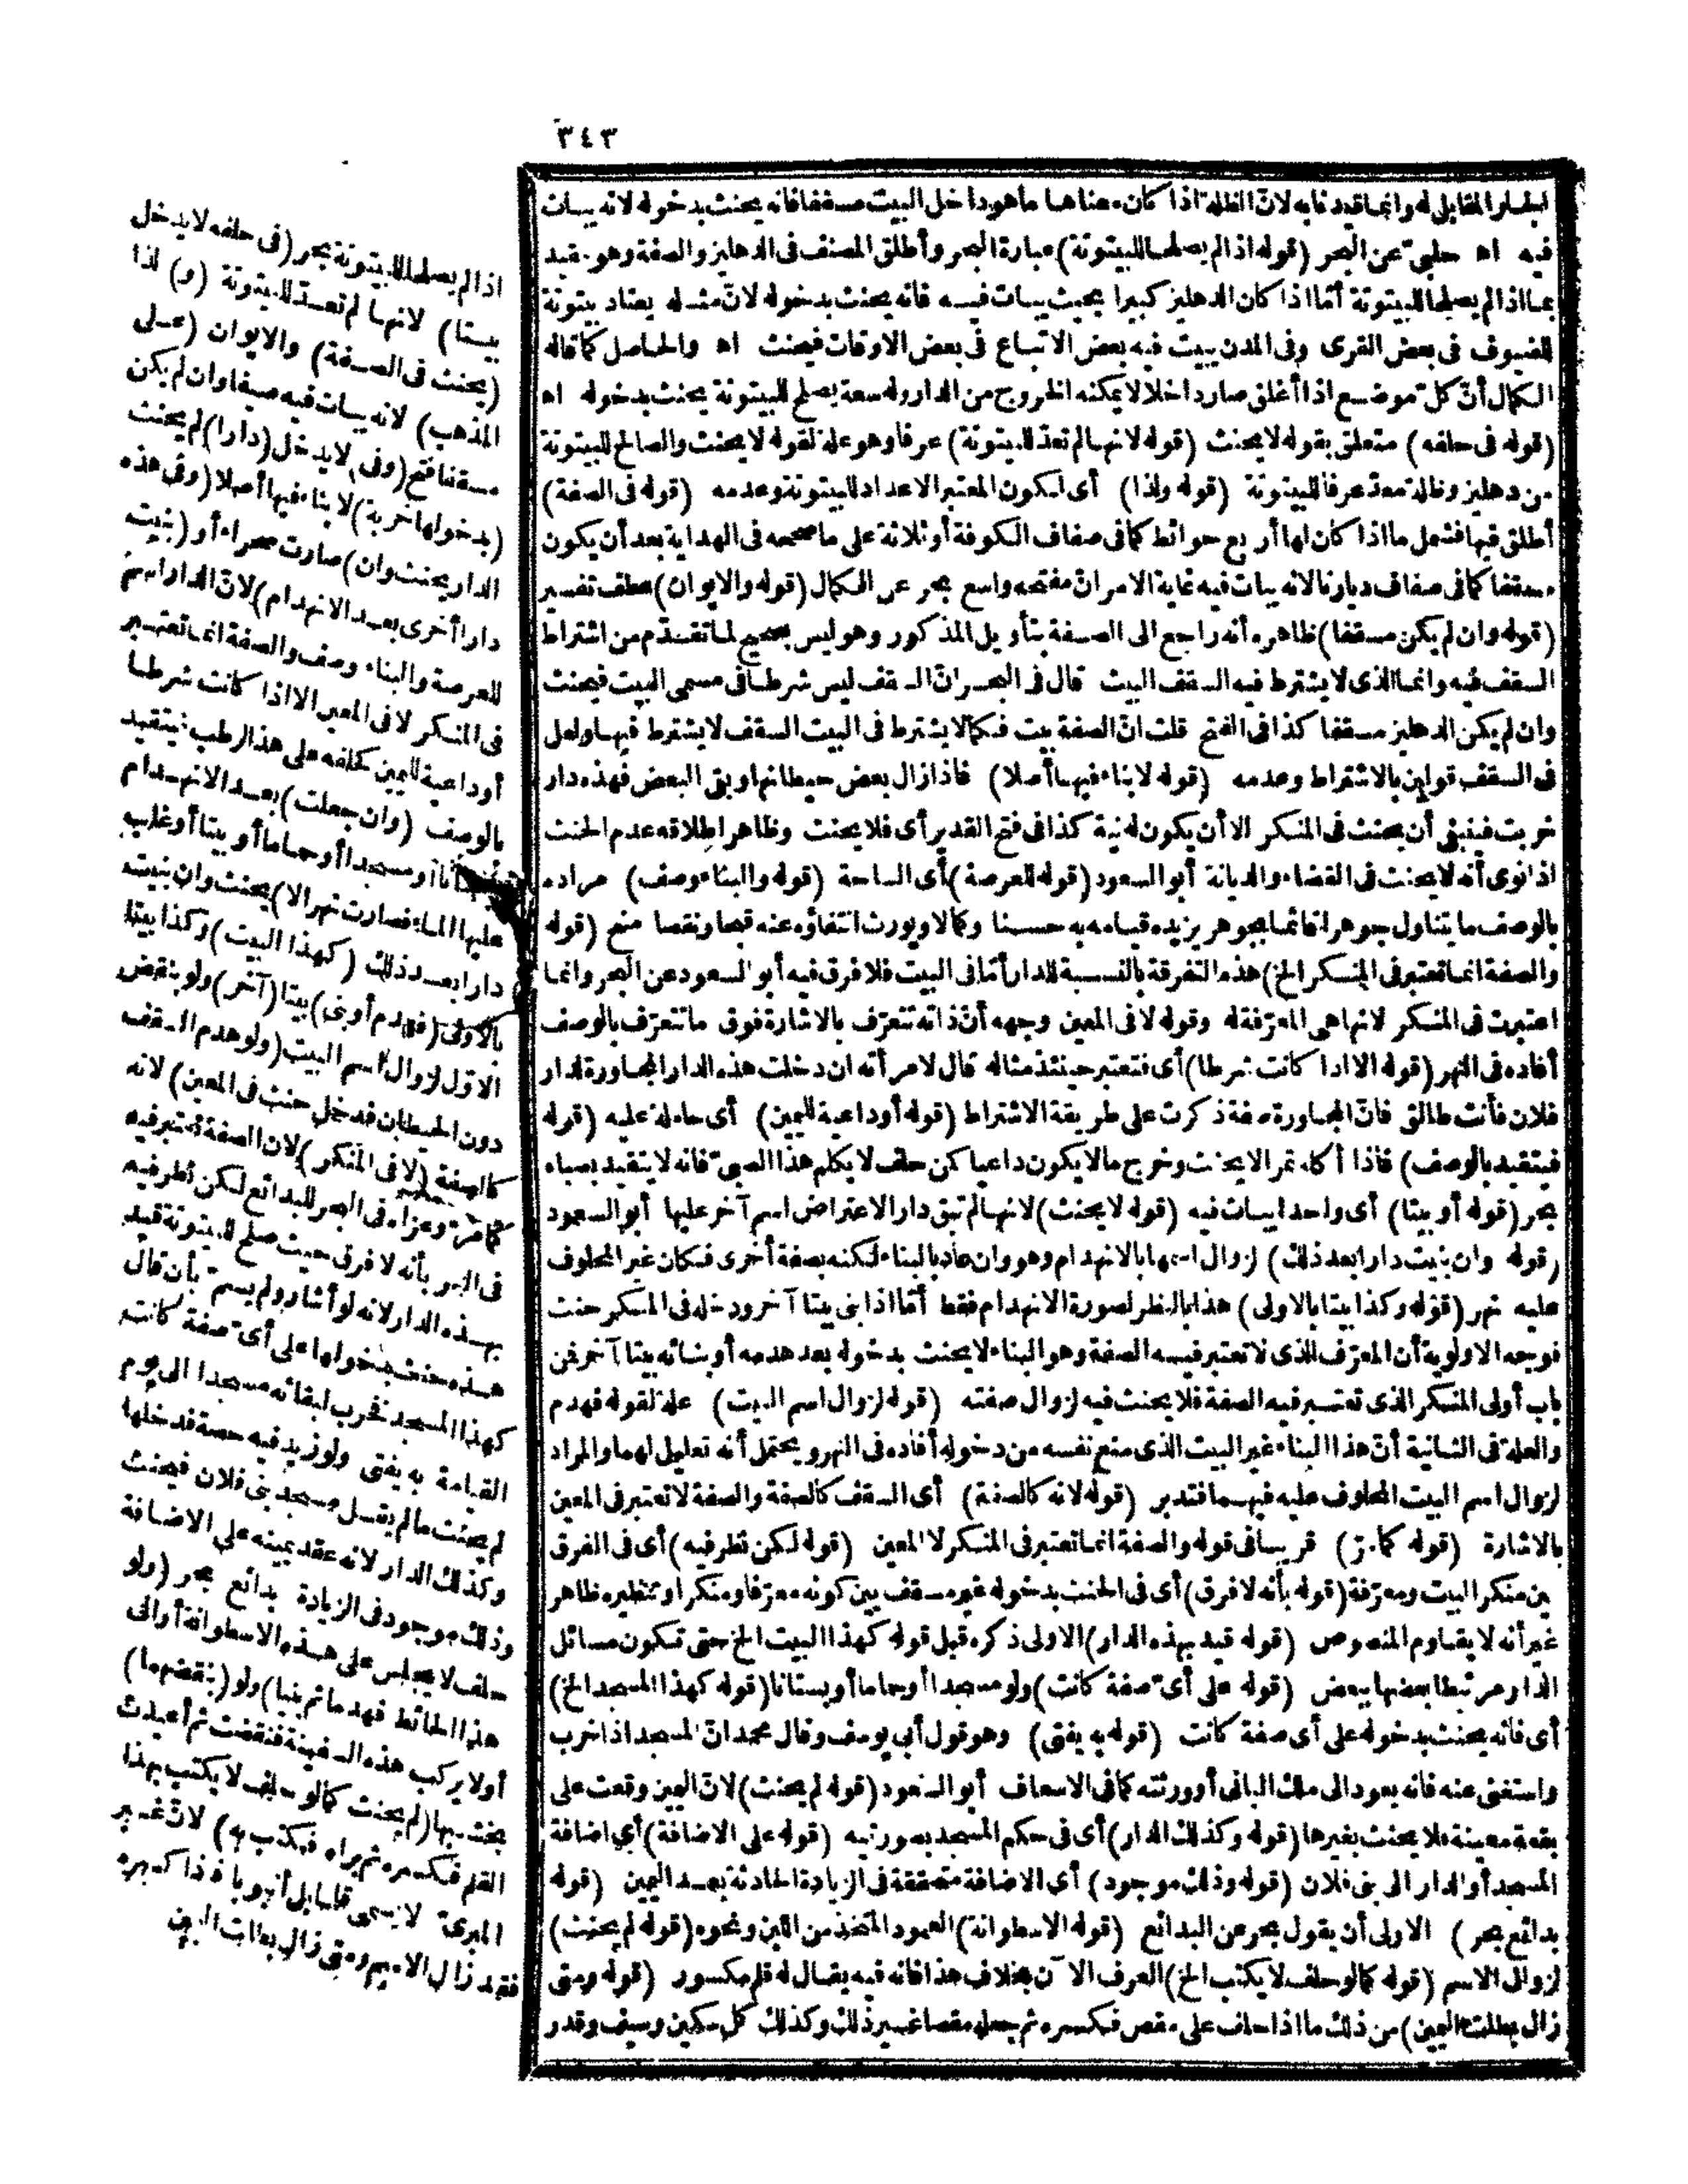 ٣٤٣
الجار المقابل له وانما قيدنا به لان الظلة اذا كان معناها ما هو داخل البيت مسقفا فانه يحنث بدخوله لانه يبات
فيه اه حلبي عن البحر (قوله اذا لم يصلحا للبيتوتة) عبارة البحر وأطلق المصنف فى الدهليز والصفة وهو مقيد
بما اذا لم يصلحا للبيتوتة أمّا اذا كان الدهليز كبيرا بحيث يبات فيه فانه يحنث بدخوله لانّ مثله يعتاد بيتوتة
للضيوف فى بعض القرى وفى المدن يبيت فيه بعض الاتباع فى بعض الاوقات فيحنث اه والحاصل كما قاله
الكمال أنّ كل موضع اذا أغلق صار داخلا لا يمكنه الخروج من الدار وله سعة يصلح للبيتوتة يحنث بدخوله اه
(قوله فى حلفه) متعلق بقوله لا يحنث (قوله لانها لم تعد للبيتوتة) عرفا وهو علة لقوله لا يحنث والصالح للبيتوتة
من دهليز وظلة معدّ عرفا للبيتوتة (قوله ولذا) أى لكون المعتبر الاعداد للبيتوتة وعدمه (قوله فى الصفة)
أطلق فيها فشمل ما اذا كان لها أربع حوائط كما فى صفاف الكوفة أو ثلاثة على ما صححه فى الهداية بعد أن يكون
مسقفا كما فى صفاف ديارنا لانه يبات فيه غاية الامر ان مفتحه واسع بحر عن الكمال (قوله والايوان) عطف تفسير
(قوله وان لم يكن مسقفا) ظاهره أنه راجع الى الصفة بتأويل المذكور وهو ليس بصحيح لما تقدّم من اشتراط
السقف فيه وانما الذى لا يشترط فيه السقف البيت قال فى البحر انّ السقف ليس شرطا فى مسمى البيت فيحنث
وان لم يكن الدهليز مسقفا كذا فى الفتح قلت انّ الصفة بيت فكما لا يشترط فى البيت السقف لا يشترط فيها ولعل
فى السقف قولين بالاشتراط وعدمه (قوله لا بناء فيها أصلا) فاذا زال بعض حيطانها وبقى البعض فهذه دار
خربت فينبغى أن يحنث فى المنكر الا أن يكون له نية كذا فى فتح القدير أى فلا يحنث وظاهر اطلاقه عدم الحنث
اذا نوى أنه لا يحنث فى القضاء والديانة أبو السعود (قوله للعرصة) أى الساحة (قوله والبناء وصف) مراده
بالوصف ما يتناول جوهرا قائما بجوهر يزيده قيامه به حسنا وكمالا ويورث انتفاؤه عنه قبحا ونقصا منح (قوله
والصفة انما تعتبر فى المنكر الخ) هذه التفرقة بالنسبة للدار أمّا فى البيت فلا فرق فيه أبو السعود عن البحر وانما
اعتبرت فى المنكر لانها هى المعرّفة له وقوله لا فى المعين وجهه أنّ ذاته تتعرّف بالاشارة فوق ما تتعرّف بالوصف
أفاده فى النهر (قوله الا اذا كانت شرطا) أى فتعتبر حينئذ مثاله قال لامرأته ان دخلت هذه الدار المجاورة لدار
فلان فأنت طالق فانّ المجاورة صفة ذكرت على طريقة الاشتراط (قوله أو داعية لليمين) أى حاملة عليه (قوله
فيتقيد بالوصف) فاذا أكله تمرا لا يحنث وخرج ما لا يكون داعيا كمن حلف لا يكلم هذا الصبىّ فانه لا يتقيد بصباه
بحر (قوله أو بيتا) أى واحدا يبات فيه (قوله لا يحنث) لانها لم تبق دارا لاعتراض اسم آخر عليها أبو السعود
(قوله وان بنيت دارا بعد ذلك) لزوال اسمها بالانهدام وهو وان عاد بالبناء لكنه بصفة أخرى فكان غير المحلوف
عليه نهر (قوله وكذا بيتا بالاولى) هذا بالنظر لصورة الانهدام فقط أمّا اذا بنى بيتا آخر ودخله فى المنكر حنث
فوجه الاولوية أن المعرّف الذى لا تعتبر فيه الصفة وهو البناء لا يحنث بدخوله بعد هدمه أو بنائه بيتا آخر فمن
باب أولى المنكر الذى تعتبر فيه الصفة فلا يحنث فيه لزوال صفته (قوله لزوال اسم البيت) علة لقوله فهدم
والعلة فى الثانية أنّ هذا البناء غير البيت الذى منع نفسه من دخوله أفاده فى النهر ويحتمل أنه تعليل لهما والمراد
لزوال اسم البيت المحلوف عليه فيهما فتدبر (قوله لانه كالصفة) أى السقف كالصفة والصفة لا تعتبر فى المعين
بالاشارة (قوله كما مرّ) قريبا فى قوله والصفة انما تعتبر فى المنكر لا المعين (قوله لكن نظر فيه) أى فى الفرق
بين منكر البيت ومعرّفه (قوله بأنه لا فرق) أى فى الحنث بدخوله غير مسقف بين كونه معرّفا ومنكرا وتنظيره ظاهر
غير أنه لا يقاوم المنصوص (قوله قيد بهذه الدار) الاولى ذكره قبل قوله كهذا البيت الخ حتى تكون مسائل
الدار مرتبطا بعضها ببعض (قوله على أىّ صفة كانت) ولو مسجدا أو حماما أو بستانا (قوله كهذا المسجد الخ)
أى فانه يحنث بدخوله على أى صفة كانت (قوله به يفتى) وهو قول أبي يوسف وقال محمد انّ المسجد اذا خرب
واستغنى عنه فانه يعود الى ملك البانى أو ورثته كما فى الاسعاف أبو السعود (قوله لم يحنث) لانّ اليمين وقعت على
بقعة معينة فلا يحنث بغيرها (قوله وكذلك الدار) أى فى حكم المسجد بصورتيه (قوله على الاضافة) أى اضافة
المسجد أو الدار الى بنى فلان (قوله وذلك موجود) أى الاضافة متحققة فى الزيادة الحادثة بعد اليمين (قوله
بدائع بحر) الاولى أن يقول بحر عن البدائع (قوله الاسطوانة) العمود المتخذ من اللبن ونحوه (قوله لم يحنث)
لزوال الاسم (قوله كما لو حلف لا يكتب الخ) العرف الآن بخلاف هذا فانه فيه يقال له قلم مكسور (قوله ومتى
زال بطلت اليمين) من ذلك ما اذا حلف على مقص فكسره ثم جعله مقصا غير ذلك وكذلك كل سكين وسيف وقدر
اذا لم يصلحا للبيتوتة بحر (فى حلفه لا يدخل
بيتا) لانها لم تعدّ للبيتوتة (و) لذا
(يحنث فى الصفة) والايوان (على
المذهب) لانه يبات فيه صيفا وان لم يكن
مسقفا فتح (وفى لا يدخل (دارا) لم يحنث
(بدخولها خربة) لا بناء فيها أصلا (وفى هذه
الدار يحنث وان) صارت صحراء أو (بنيت
دارا أخرى بعد الانهدام) لانّ الدار اسم
للعرصة والبناء وصف والصفة انما تعتبر
فى المنكر لا فى المعين الا اذا كانت شرطا
أو داعية لليمين كحلفه على هذا الرطب فيتقيد
بالوصف (وان جعلت) بعد الانهدام
أو مسجدا أو حماما أو بيتا أو غلب
عليها الماء فصارت نهرا لا) يحنث وان بنيت
دارا بعد ذلك (كهذا البيت) وكذا بيتا
بالاولى (فهدم أو بنى) بيتا (آخر) ولو بنقض
الاول لزوال اسم البيت (ولو هدم السقف
دون الحيطان فدخل حنث فى المعين) لانه
كالصفة (لا فى المنكر) لان الصفة تعتبر فيه
كما مرّ وعزاه فى البحر للبدائع لكن نظر فيه
فى النهر بأنه لا فرق حيث صلح للبيتوتة قيد
بهذه الدار لانه لو أشار ولم يسم بأن قال
هذه حنث بدخولها على أىّ صفة كانت
كهذا المسجد فخرب لبقائه مسجدا الى يوم
القيامة به يفتى ولو زيد فيه حصة فدخلها
لم يحنث ما لم يقل مسجد بنى فلان فيحنث
وكذلك الدار لانه عقد يمينه على الاضافة
وذلك موجود فى الزيادة بدائع بحر (ولو
حلف لا يجلس على هذه الاسطوانة أو الى
هذا الحائط فهدما ثم بنيا) ولو (بنقضهما)
أو لا يركب هذه السفينة فنقضت ثم أعيدت
بخشبها (لم يحنث كما لو حلف لا يكتب بهذا
القلم فكسره ثم براه فكتب به) لانّ غير
المبرىّ لا يسمى قلما بل أنبوبا فاذا كسره
فقد زال الاسم ومتى زال بطلت اليمين